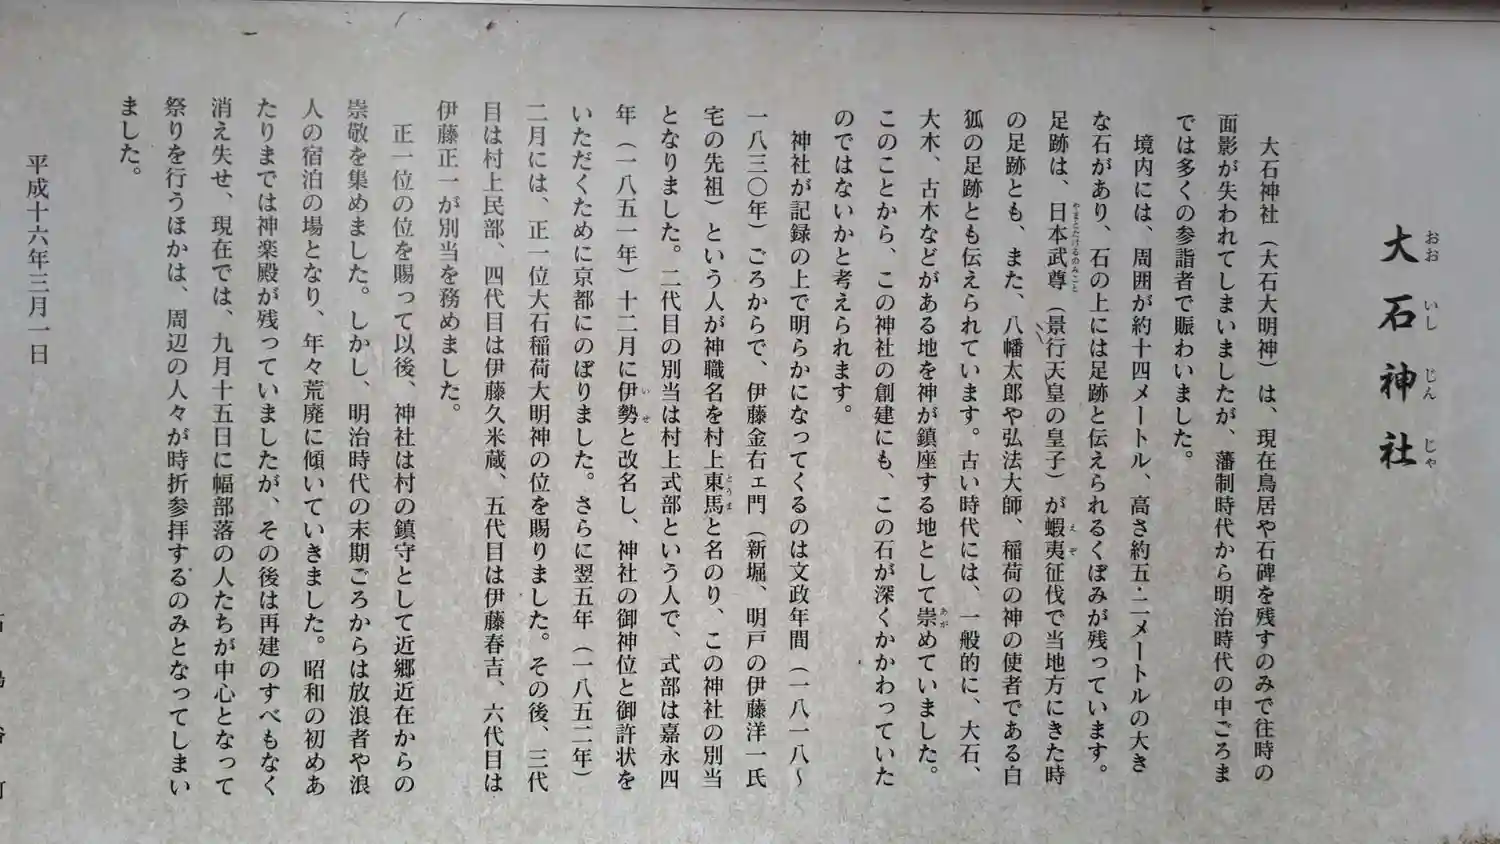 大石神社
おおいしじんじゃ
大石神社（大石大明神）は、現在鳥居や石碑を残すのみで往時の
面影が失われてしまいましたが、藩制時代から明治時代の中ごろま
では多くの参詣者で賑わいました。
境内には、周囲が約十四メートル、高さ約五・二メートルの大き
な石があり、石の上には足跡と伝えられるくぼみが残っています。
足跡は、日本武尊（景行天皇の皇子）が蝦夷征伐で当地方にきた時
やまとたけるのみこと
えぞ
の足跡とも、また、八幡太郎や弘法大師、稲荷の神の使者である白
狐の足跡とも伝えられています。古い時代には、一般的に、大石、
大木、古木などがある地を神が鎮座する地として崇めていました。
あが
このことから、この神社の創建にも、この石が深くかかわっていた
のではないかと考えられます。
神社が記録の上で明らかになってくるのは文政年間（一八一八〜
一八三〇年）ごろからで、伊藤金右ェ門（新堀、明戸の伊藤洋一氏
宅の先祖）という人が神職名を村上東馬と名のり、この神社の別当
とうま
となりました。二代目の別当は村上式部という人で、式部は嘉永四
年（一八五一年）十二月に伊勢と改名し、神社の御神位と御許状を
いせ
いただくために京都にのぼりました。さらに翌五年（一八五二年）
二月には、正一位大石稲荷大明神の位を賜りました。その後、三代
目は村上民部、四代目は伊藤久米蔵、五代目は伊藤春吉、六代目は
伊藤正一が別当を務めました。
正一位の位を賜って以後、神社は村の鎮守として近郷近在からの
崇敬を集めました。しかし、明治時代の末期ごろからは放浪者や浪
人の宿泊の場となり、年々荒廃に傾いていきました。昭和の初めあ
たりまでは神楽殿が残っていましたが、その後は再建のすべもなく
消え失せ、現在では、九月十五日に幅部落の人たちが中心となって
祭りを行うほかは、周辺の人々が時折参拝するのみとなってしまい
ました。
平成十六年三月一日